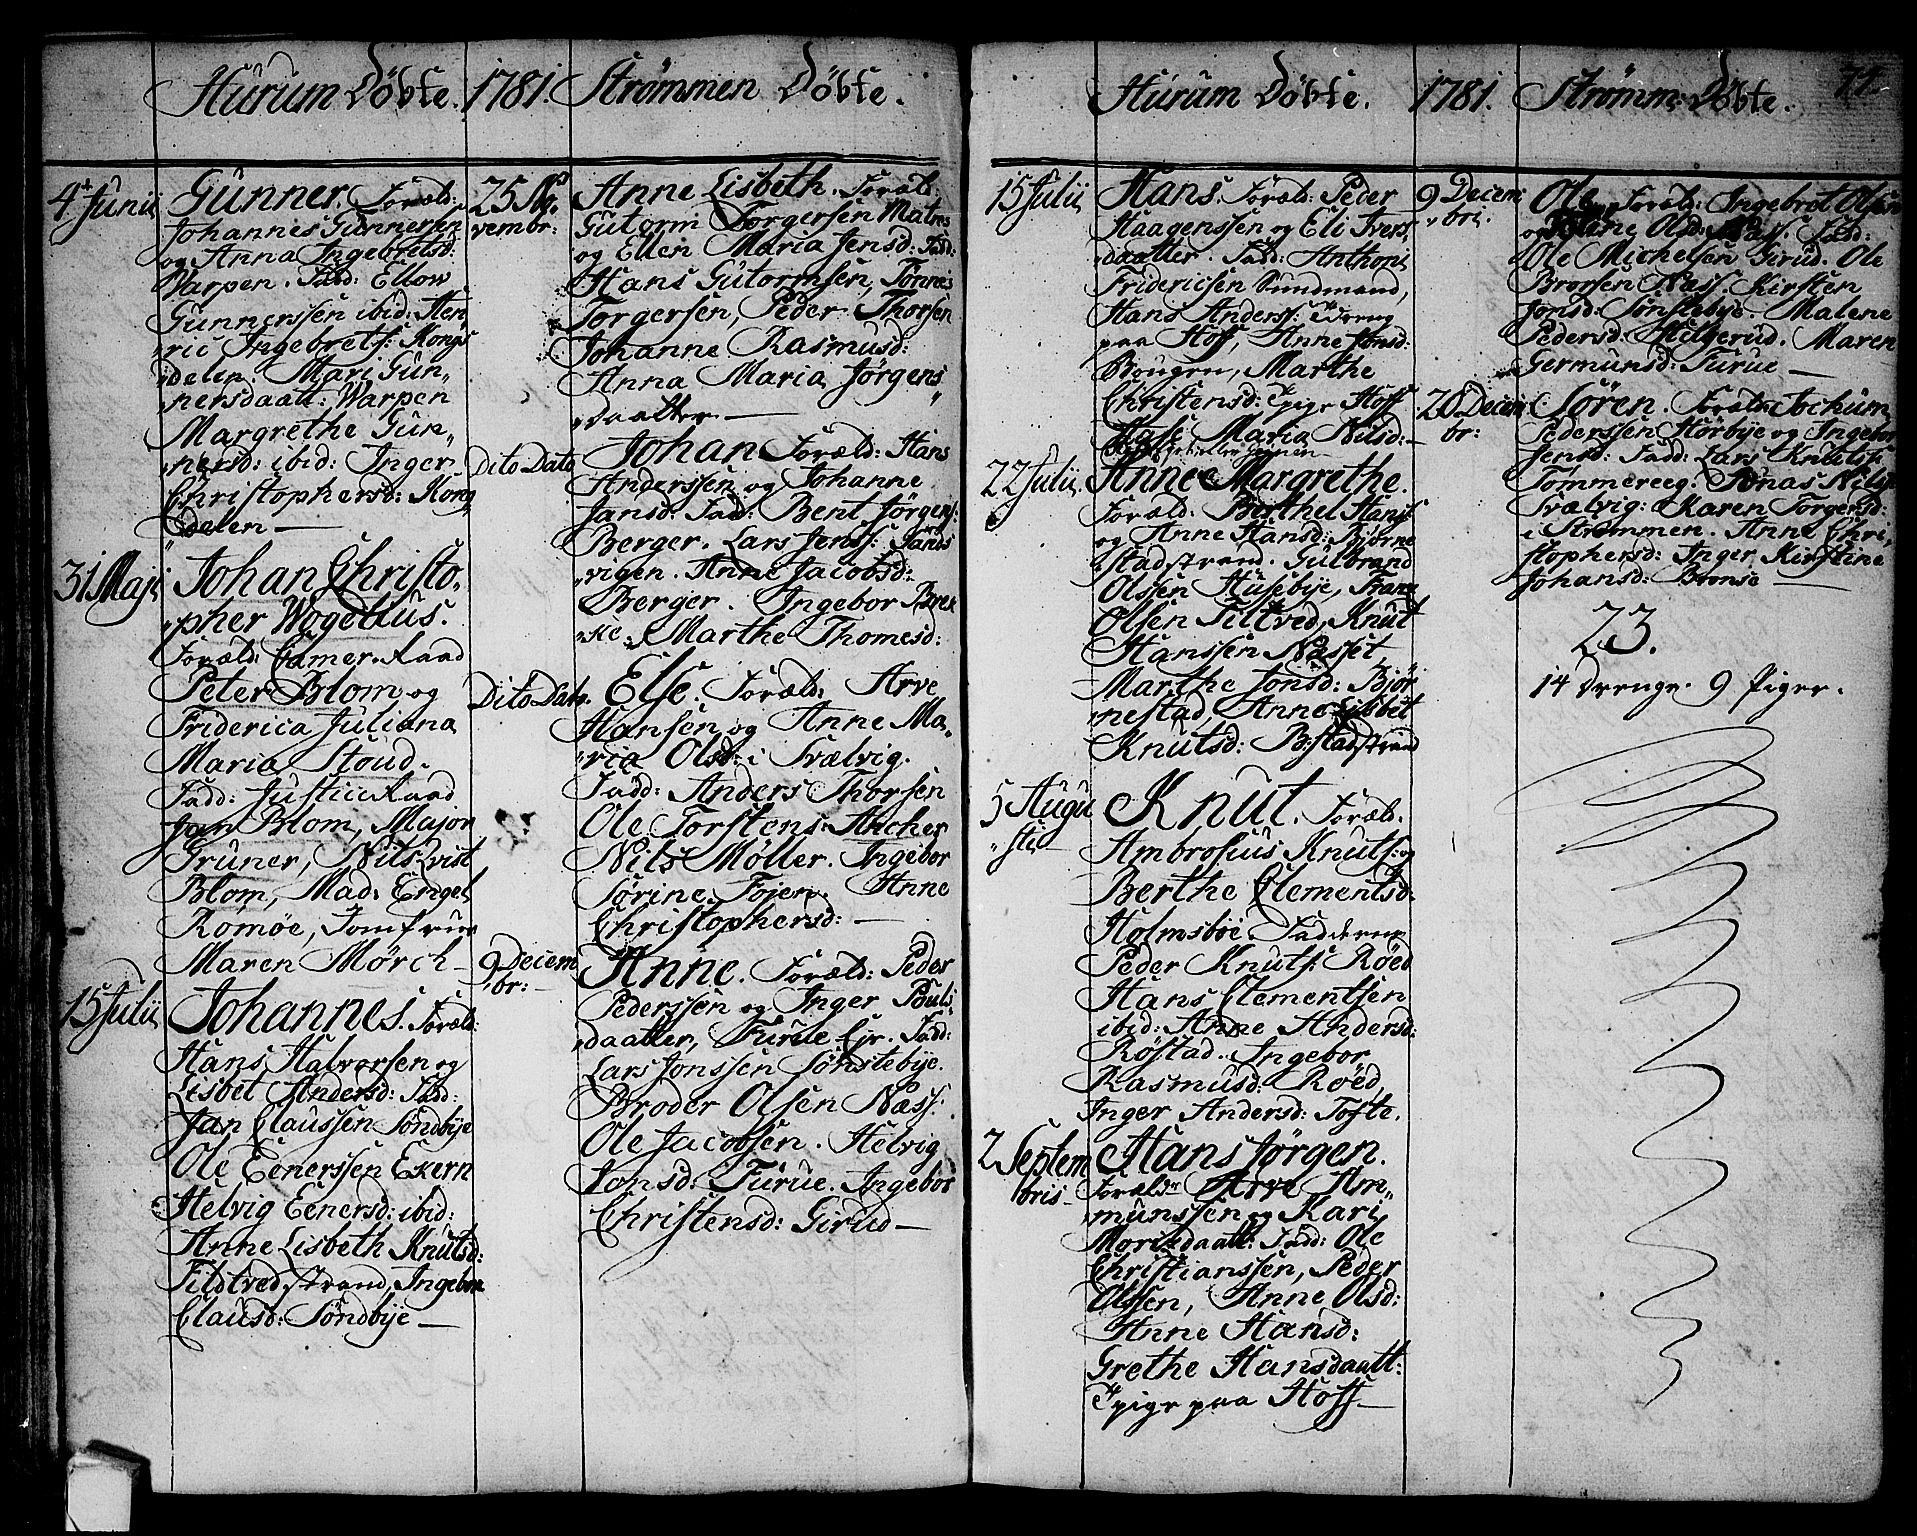 Hurum Döbte. 1781. Strømmen Döbte.
4 Junii
Gunner. Foræld:
Johannes Gunnersen
og Anna Ingebretsd:
Warpen. Fadd: Ellow
Gunnerssen ibid: Hen
ric Ingebretss: Kongs
delen. Mari Gun„
nersdaatt: Warpen
Margrethe Gun„
nersd: ibid: Inger
Christophersd: Kong
delen —
31 Maji
Johan Christo„
pher Wogelius.
Foræld: Camer-Raad
Peter Blom og
Friderica Juliana
Maria Stoud.
Fadd: Justice Raad
Jan Blom, Major
Gruner, Nils Qvist
Blom, Mad: Engel
Romøe, Jomfrue
Maren Mörch —
15 Julii
Johannes. Foræld:
Hans Halvorsen og
Lisbet Andersd: Fadd:
Jan Claussen Søndbÿe
Ole Eenerssen Ekern
Helvig Eenersd: ibid:
Anne Lisbeth Knutsd:
Tildtved strand, Ingebor
Clausd: Söndbÿe —
25 No„
vembr:
Anne Lisbeth. Foræld:
Gutorm Torgersen
og Ellen Maria Jensd: Fadd:
Hans Gutormsen, Tønnes
Torgersen, Peder Thorsen
Johanne Rasmusd:
Anna Maria Jørgens„
daatter —
Dito Dato
Johan Foræld: Hans
Anderssen og Johanne
Jansd: Fad: Bent Jørgens:
Berger. Lars Jenss: Sands
vigen. Anne Jacobsd:
Berger. Ingebor Brek
ke. Marthe Thomesd:
Dito Dato.
Else. Foræld: Arve
Hansen og Anne Ma„
ria Olsd: i Svælvig.
Fadd: Anders Thorsen
Ole Torstens: Ancher
Nils Møller. Ingebor
Sørine Föyen. Anne
Christophersd: —
9 Decem
br:
Anne. Foræld: Peder
Pederssen og Inger Pouls
daatter, Furue Ejr. Fadd:
Lars Jonssen Sønstebÿe.
Broder Olsen Næss:
Ole Jacobsen. Helvig
Jonsd: Furue. Ingebor
Christensd: Girud —
Hurum Döbte. 1781. Strømm: Döbte. 71.
15 Julii
Hans. Foræld: Peder
Haagenssen og Eli Ivers
daatter. Fadd: Anthoni
Fridericsen Sundmand,
Hans Anderss:
paa Hoff, Anne Jonsd:
Bougen, Marthe
Christensd: Tpige Hoff
Maria Nilsd: —
22 Julii.
Anne Margrethe.
Foræld: Berthel Hanss
og Anne Hansd: Bjørne
stadstrand. Gulbrand
Olssen Husebÿe, Franz
Olsen Tiltved, Knut
Hanssen Nasset
Marthe Jonsd: Bjør
nestad, Anne Lisbet
Knutsd: B:stadstrand
5 Augu
„sti
Knut. Foræld:
Ambrosius Knuts: og
Berthe Clementsd:
Holmsbøe. Fadderne
Peder Knuts: Røed
Hans Clementsen
ibid: Anne Andersd:
Røstad. Ingebor
Rasmusd: Røed,
Inger Andersd: Tofte.
2 Septem
bris
Hans Jørgen.
Foræld: Arve Am„
munssen og Kari
Morisdaatt: Fadd: Ole
Christianssen, Peder
Olssen, Anne Olsd:
Anne Hansd:
Grethe Hansdaatt:
Tpige paa Hoff —
9 Decem
bri.
Ole. Foræld: Ingebrot Olsen
og Olsd: Næss. Fadd:
Ole Michelsen Girud. Ole
Brorsen Næss. Kirsten
Jonsd: Sønstebÿe. Malene
Pedersd: Helgerud. Maren
Germunsd: Furue —
26 Decem
br:
Søren. Foræld: Jochum
Pederssen Størbÿe og Ingebor
Jensd: Fadd: Lars Knuts:
Tømmereeg. Jonas Nils:
Svælvig. Karen Torgersd:
i Strømmen. Anne Chri„
stophersd: Inger Kirstine
Johansd: Bronse —
23.
14 Drenge. 9 Piger.